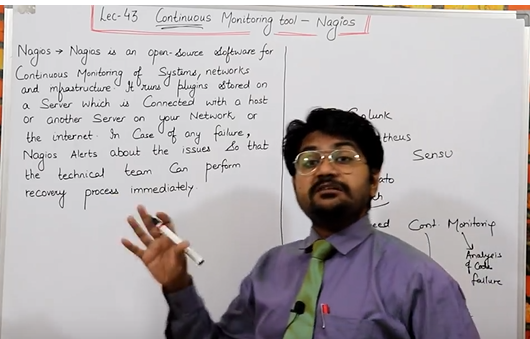 Lec-43 Continuous Monitoring tool - Nagios
Nagios → Nagios is an open-source software for
Continuous Monitoring of Systems, networks
and infrastructure. It runs plugins stored on
a Server which is Connected with a host
or another Server on your Network or
the internet. In Case of any failure,
Nagios Alerts about the issues So that
the technical team Can perform
recovery process immediately.
Sensu
Cont. Monitoring
Analysis
of Code
failure